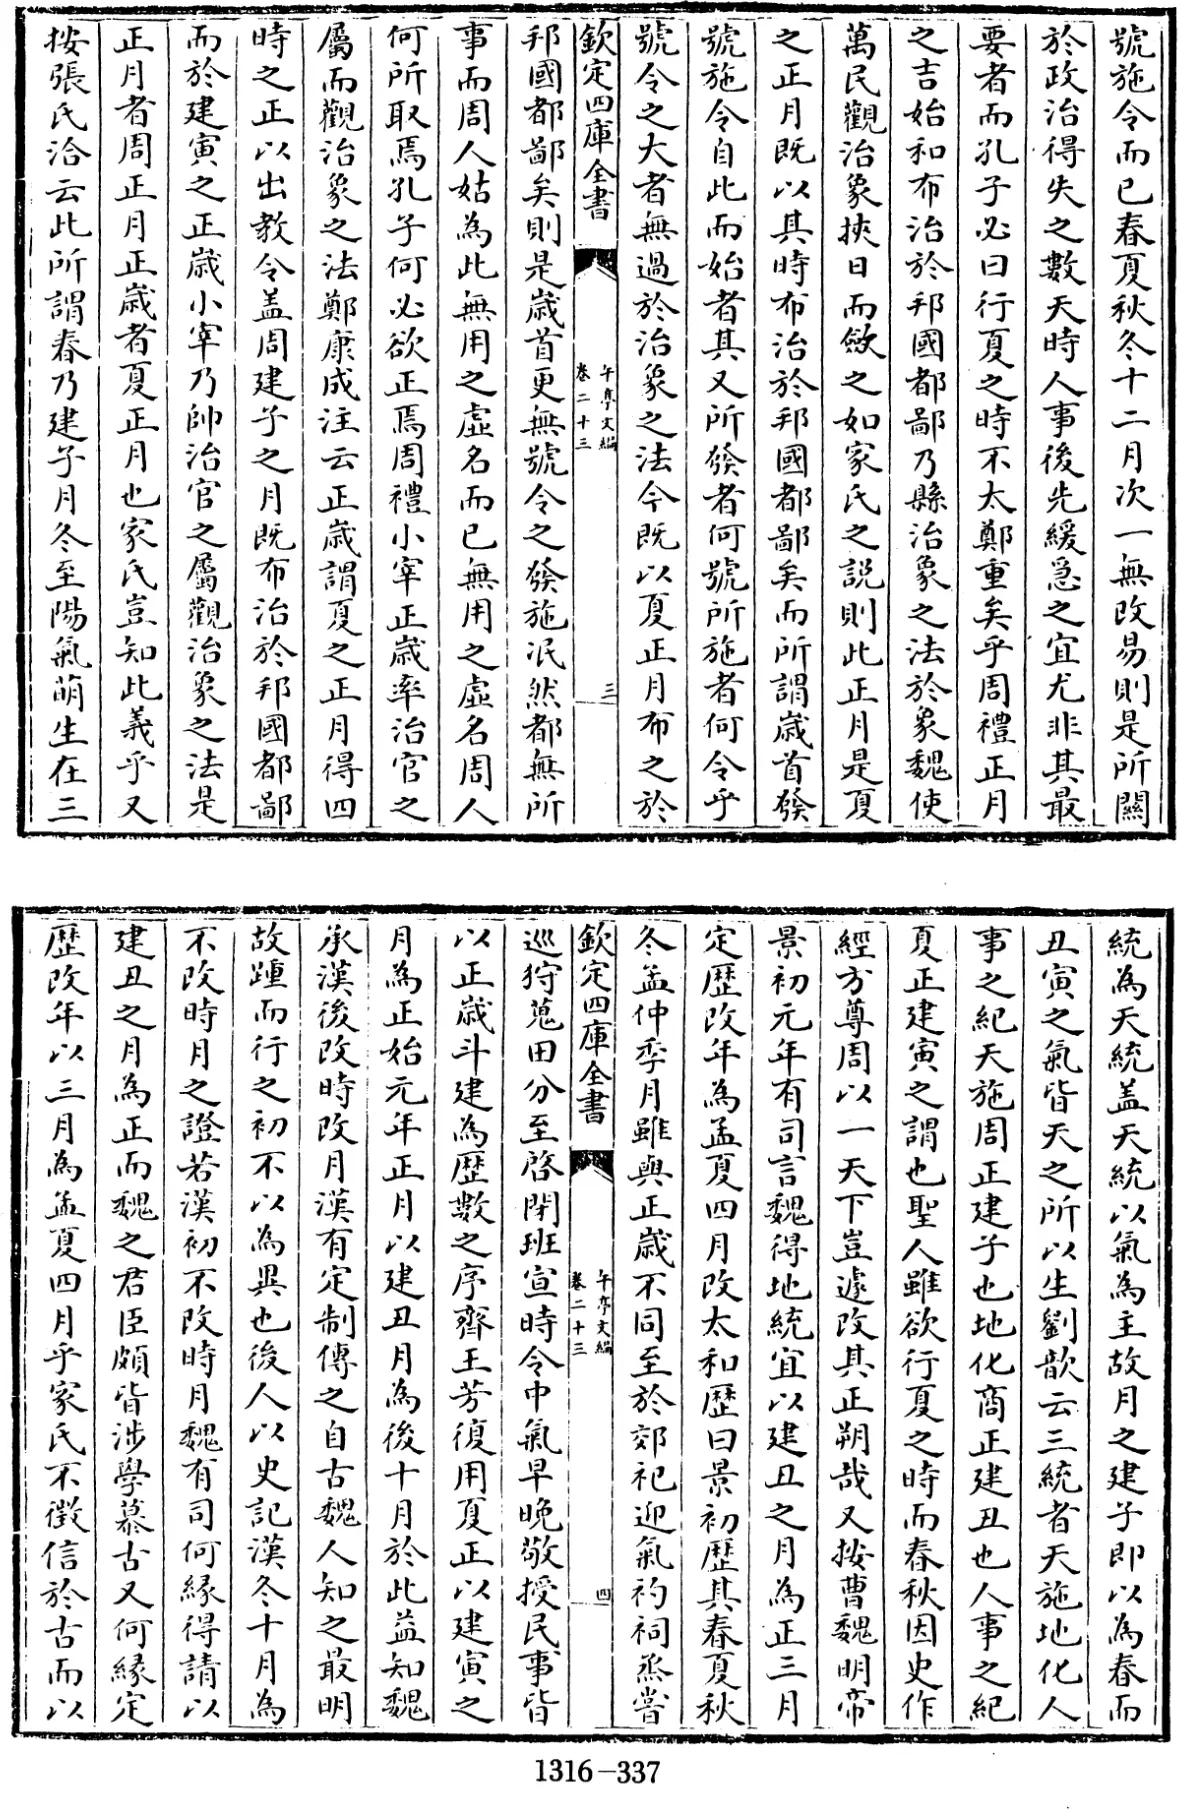 號施令而已春夏秋冬十二月次一無改易則是所關
於政治得失之數天時人事後先緩急之宜尤非其最
要者而孔子必曰行夏之時不太鄭重矣乎周禮正月
之吉始和布治於邦國都鄙乃縣治象之法於象魏使
萬民觀治象挾日而斂之如家氏之説則此正月是夏
之正月既以其時布治於邦國都鄙矣而所謂歲首發
號施令自此而始者其又所發者何號所施者何令乎
號令之大者無過於治象之法今既以夏正月布之於
欽定四庫全書
午亭文編
卷二十三
三
邦國都鄙矣則是歲首更無號令之發施泯然都無所
事而周人姑為此無用之虛名而已無用之虛名周人
何所取焉孔子何必欲正焉周禮小宰正歲率治官之
屬而觀治象之法鄭康成注云正歲謂夏之正月得四
時之正以出教令盖周建子之月既布治於邦國都鄙
而於建寅之正歲小宰乃帥治官之屬觀治象之法是
正月者周正月正歲者夏正月也家氏豈知此義乎又
按張氏洽云此所謂春乃建子月冬至陽氣萌生在三
統為天統盖天統以氣為主故月之建子即以為春而
丑寅之氣皆天之所以生劉歆云三統者天施地化人
事之紀天施周正建子也地化商正建丑也人事之紀
夏正建寅之謂也聖人雖欲行夏之時而春秋因史作
經方尊周以一天下豈遽改其正朔哉又按曹魏明帝
景初元年有司言魏得地統宜以建丑之月為正三月
定歷改年為孟夏四月改太和歷曰景初歷其春夏秋
冬孟仲季月雖與正歲不同至於郊祀迎氣礿祠烝嘗
欽定四庫全書
午亭文編
卷二十三
四
巡狩蒐田分至啓閉班宣時令中氣早晚敬授民事皆
以正歲斗建為歷數之序齊王芳復用夏正以建寅之
月為正始元年正月以建丑月為後十二月於此益知魏
承漢後改時改月漢有定制傳之自古魏人知之最明
故踵而行之初不以為異也後人以史記漢冬十月為
不改時月之證若漢初不改時月魏有司何緣得請以
建丑之月為正而魏之君臣頗皆涉學慕古又何緣定
歷改年以三月為孟夏四月乎家氏不徵信於古而以
1316-337